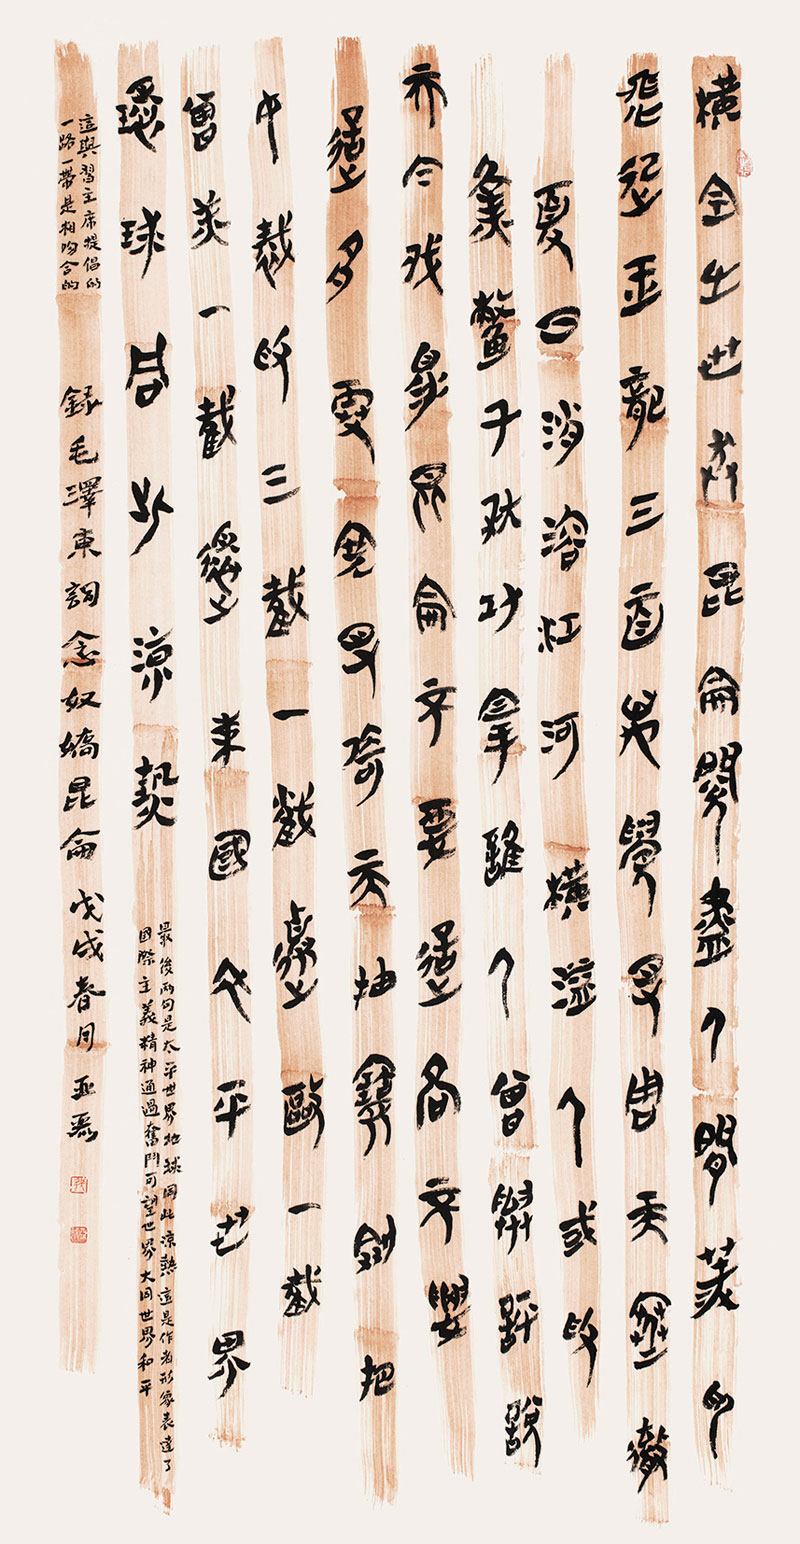 橫空出世莽昆侖閱盡人間春色
飛起玉龍三百萬攪得周天寒徹
夏日消溶江河橫溢人或為
魚鱉千秋功罪誰人曾與評說
而今我謂昆侖不要這高不要
這多雪安得倚天抽寶劍把
汝裁為三截一截遺歐一截
贈美一截還東國太平世界
環球同此涼熱
最後兩句是太平世界地球同此涼熱這是作者形象表達了
國際主義精神通過奮鬥可望世界大同世界和平
這與習主席提倡的
一路一帶是相吻合的
錄毛澤東詞念奴嬌昆侖戊戌春月